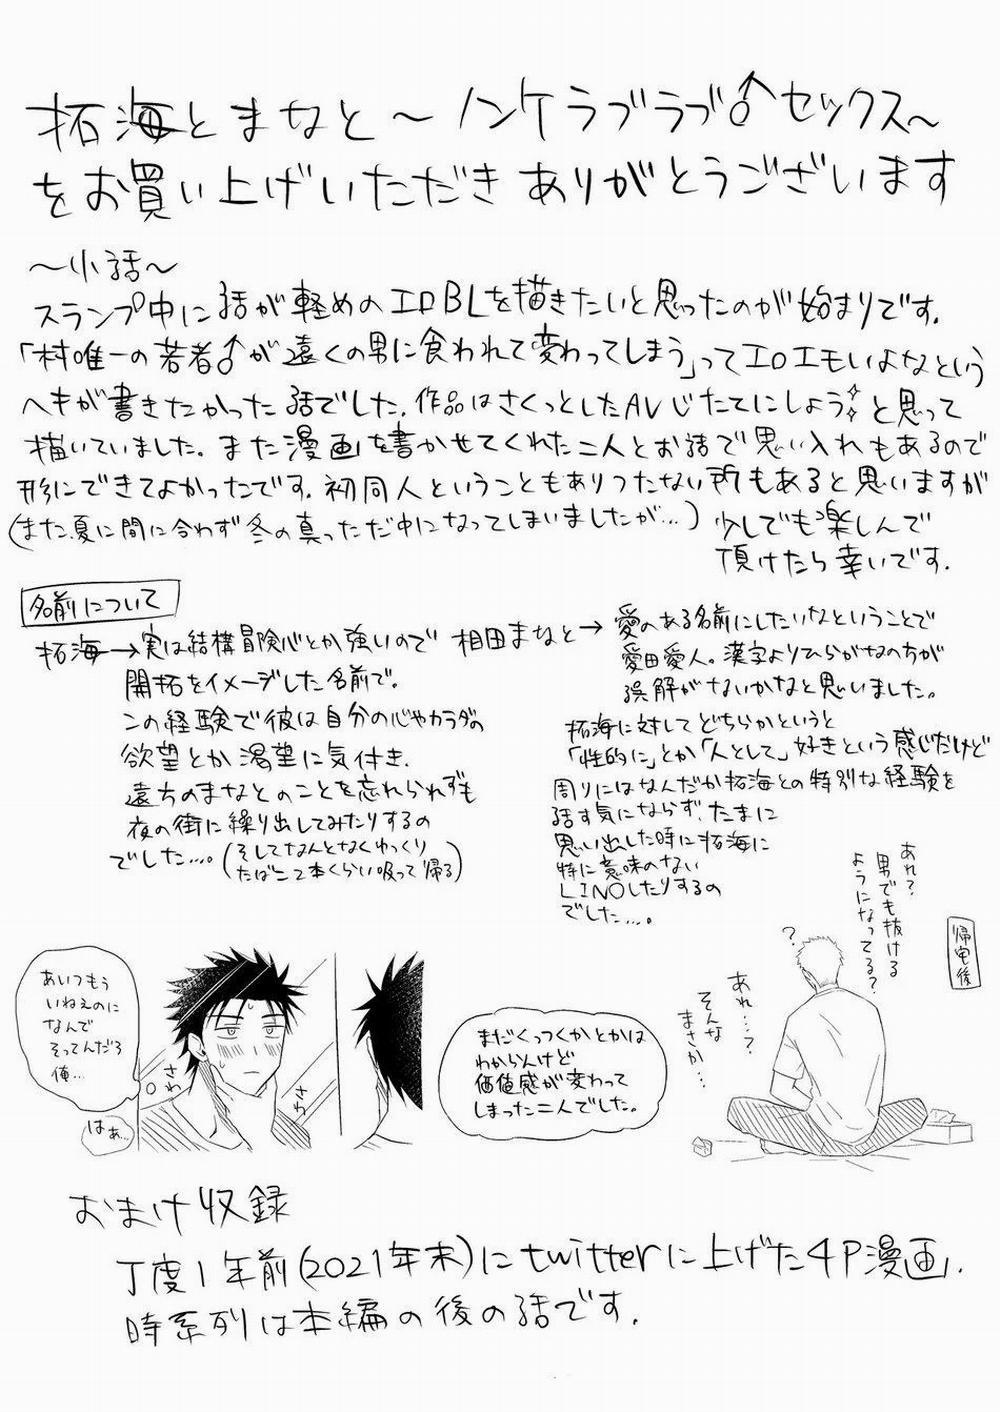 拓海とまなと～ノンケラブラブ♂セックス～
をお買い上げいただきありがとうございます
～小話～
スランプ中に話が軽めのエロBLを描きたいと思ったのが始まりです.
「村唯一の若者♂が遠くの男に食われて変わってしまう」ってエロエモいよなという
ヘキが書きたかった話でした.作品はさくっとしたAVじたてにしようと思って
描いていました。また漫画を書かせてくれた二人とお話で思い入れもあるので
形にできてよかったです.初同人ということもありつたない所もあると思いますが
(また、夏に間に合わず冬の真っただ中になってしまいましたが…) 少しでも楽しんで
頂けたら幸いです.
名前について
拓海→実は結構冒険心とか強いので
開拓をイメージした名前で。
この経験で彼は自分の心やカラダの
欲望とか渇望に気付き、
遠方のまなとのことを忘れられずも
夜の街に繰り出してみたりするの
でした…。(そしてなんとなくゆっくり
たばこ2本くらい吸って帰る)
相田まなと→愛のある名前にしたいなということで
愛田愛人。漢字よりひらがなの方が
誤解がないかなと思いました。
拓海に対してどちらかというと
「性的に」とか「人として」好きという感じだけど
周りにはなんだか拓海との特別な経験を
話す気にならず、たまに
思い出した時に拓海に
特に意味のない
LINOしたりするの
でした…。
帰宅後
あれ?
男でも抜ける
ようになってる?
?
あれ…?
そんな
まさか…
あいつもう
いねぇのに
なんで
そってんだろ
俺…
はぁ…
さわ
さわ
まだくっつくかとかは
わからんけど
価値感が変わって
しまった二人でした。
おまけ収録
丁度1年前(2021年末)にtwitterに上げた4P漫画.
時系列は本編の後の話です.